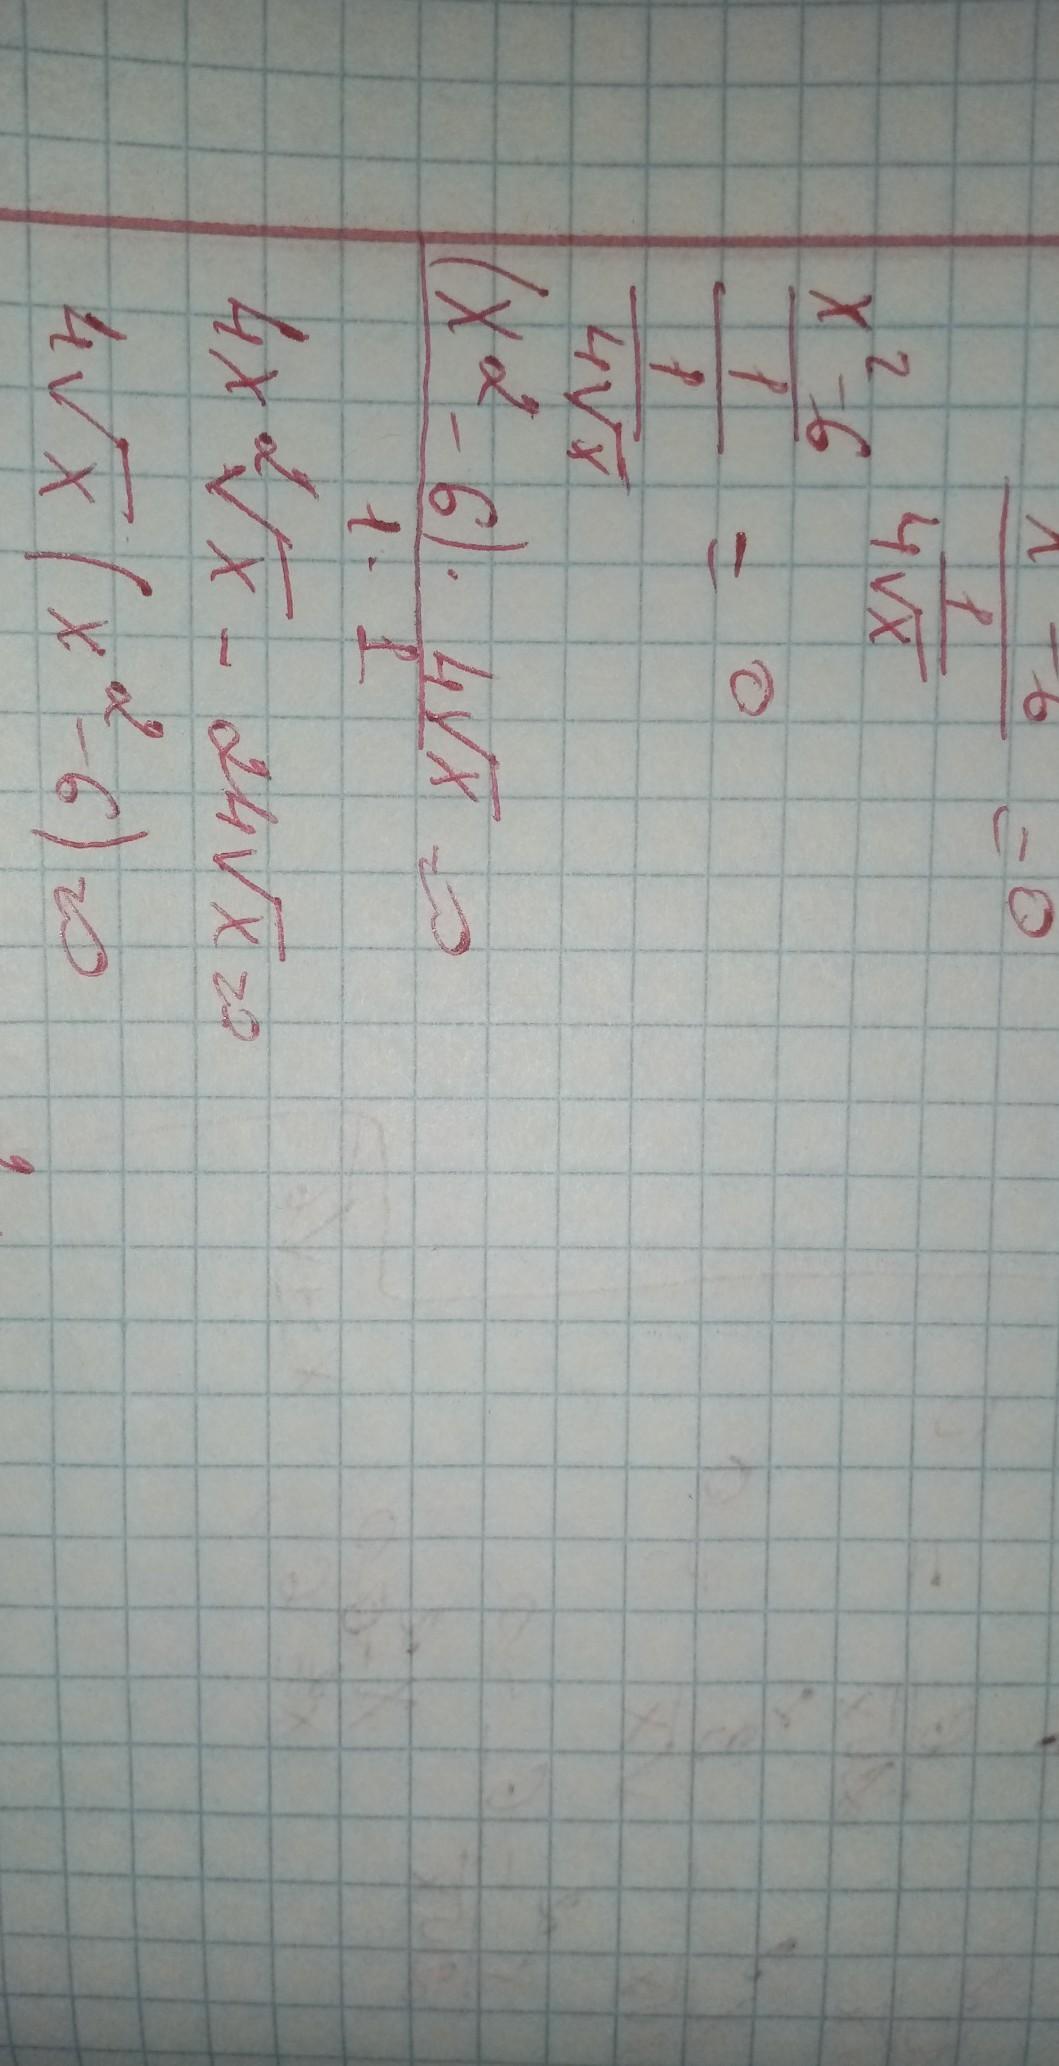 x² - 6 / (1 / 4√x) = 0
((x² - 6) / 1) / (1 / 4√x) = 0
(x² - 6) · 4√x / 1 · 1 = 0
4x²√x - 24√x = 0
4√x (x² - 6) = 0